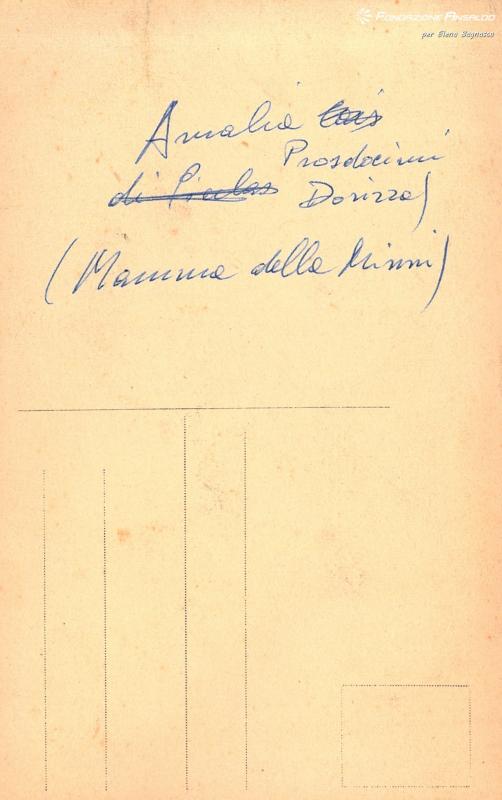 FONDAZIONE ANSALDO
per Elena Bagnasco
Amalia
Prosdocimi
di Dorizza)
(Mamma della Mimmi)